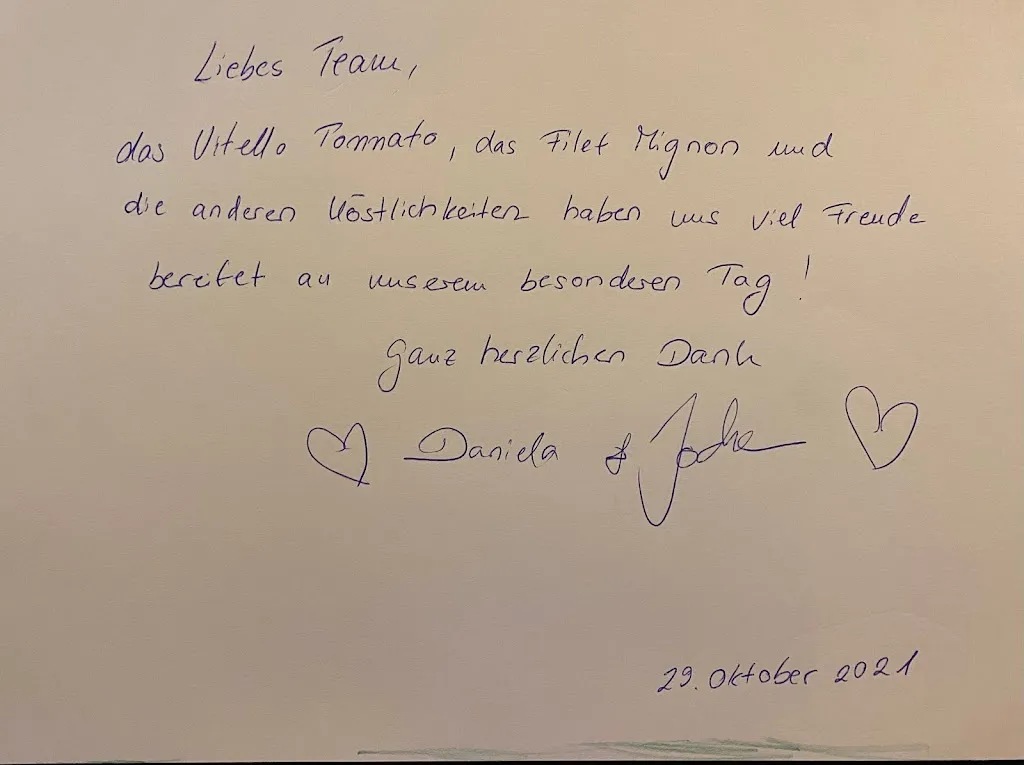 Liebes Team,
das Vitello Tonnato, das Filet Mignon und
die anderen Köstlichkeiten haben uns viel Freude
bereitet an unserem besonderen Tag!
Ganz herzlichen Dank
Daniela &
29. Oktober 2021